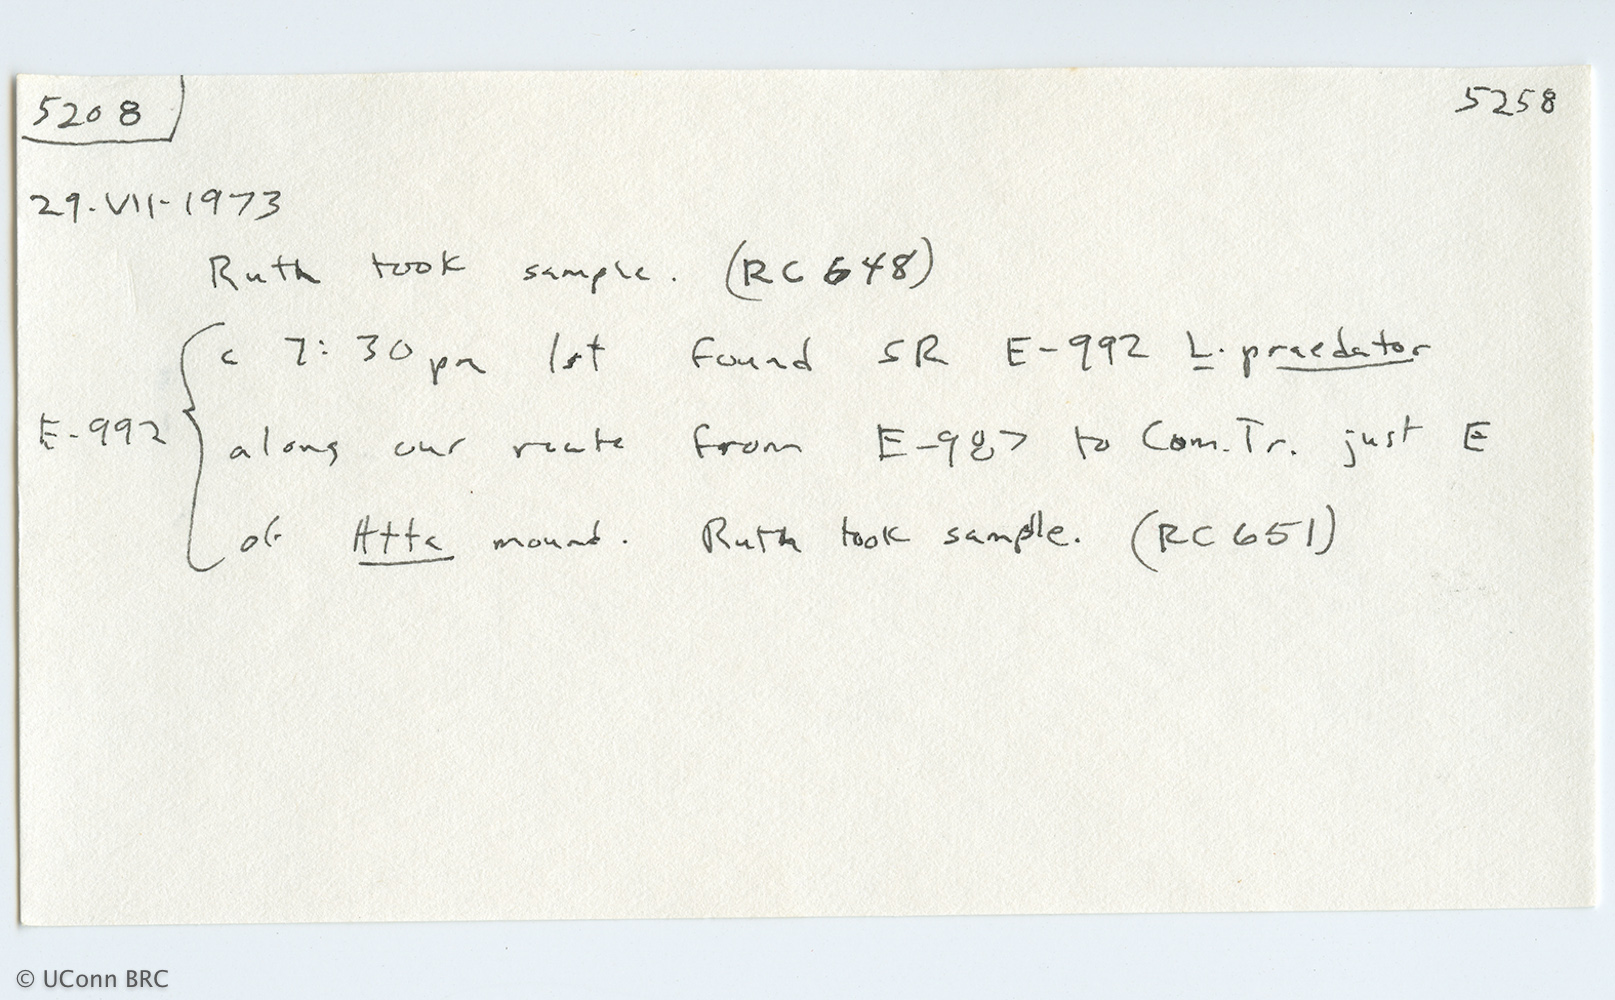 5208
5258
29.VII.1973
Ruth took sample. (RC 648)
c 7:30 pm 1st found SR E-992 L. praedator
E-992
along our route from E-987 to Com. Tr. just E
of Atta mound. Ruth took sample. (RC 651)
© UConn BRC